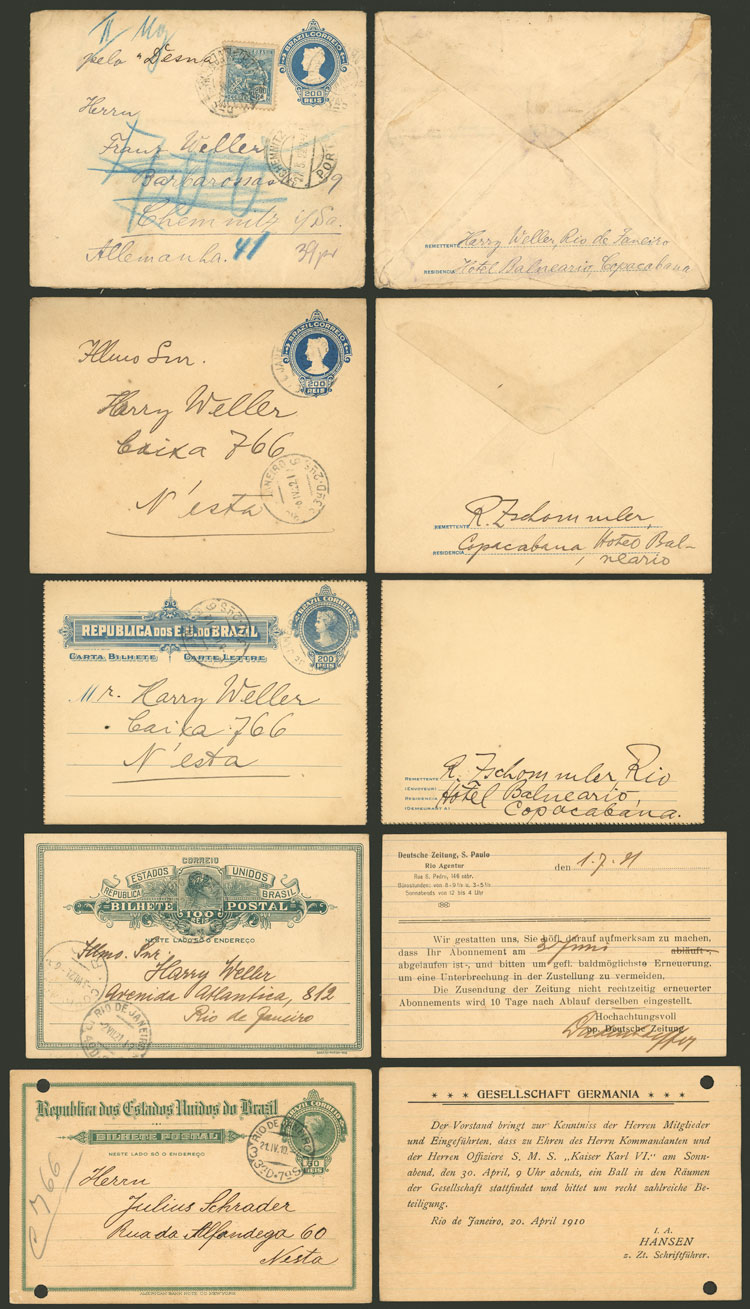 pelo "Desna"
BRAZIL CORREIO
200
REIS
BRASIL
Herrn
Franz Weller
Barbarossastr. 9
Chemnitz i/Sa.
Allemanha. 41
CHEMNITZ
PORT
REMETTENTE Harry Weller, Rio de Janeiro
RESIDENCIA Hôtel Balneario, Copacabana
BRAZIL CORREIO
200
REIS
Illmo Snr.
Harry Weller
Caixa 766
N'ésta
REMETTENTE R. Zschommler,
RESIDENCIA Copacabana, Hotel Bal-
neario
REPUBLICA DOS E. U. DO BRAZIL
CARTA BILHETE CARTE LETTRE
BRAZIL CORREIO
200
REIS
Mr. Harry Weller
Caixa 766
N'ésta
REMETTENTE R. Zschommler, Rio
(ENVOYEUR)
RESIDENCIA Hôtel Balneario,
(DEMEURANT À) Copacabana.
CORREIO
ESTADOS UNIDOS
REPUBLICA BRASIL
BILHETE POSTAL
100
REIS
NESTE LADO SÓ O ENDEREÇO
Illmo. Snr.
Harry Weller
Avenida Atlantica, 812
Rio de Janeiro
RIO DE JANEIRO
Deutsche Zeitung, S. Paulo
Rio Agentur
Rua S. Pedro, 146 sobr.
Bürostunden: von 8-9½ u. 3-5½
Sonnabends von 12 bis 4 Uhr
den 1.7.21
Wir gestatten uns, Sie höfl. darauf aufmerksam zu machen,
dass Ihr Abonnement am 30 Juni abläuft,
abgelaufen ist, und bitten um gefl. baldmöglichste Erneuerung,
um eine Unterbrechung in der Zustellung zu vermeiden.
Die Zusendung der Zeitung nicht rechtzeitig erneuerter
Abonnements wird 10 Tage nach Ablauf derselben eingestellt.
Hochachtungsvoll
pp. Deutsche Zeitung
Republica dos Estados Unidos do Brazil
BILHETE POSTAL
NESTE LADO SÓ O ENDEREÇO
BRAZIL CORREIO
50
REIS
RIO DE JANEIRO
21.IV.10
C 766
Herrn
Julius Schrader
Rua da Alfandega 60
Nesta
AMERICAN BANK NOTE CO. NEW YORK.
* * * GESELLSCHAFT GERMANIA * * *
Der Vorstand bringt zur Kenntniss der Herren Mitglieder
und Eingeführten, dass zu Ehren des Herrn Kommandanten und
der Herren Offiziere S. M. S. „Kaiser Karl VI.“ am Sonn-
abend, den 30. April, 9 Uhr abends, ein Ball in den Räumen
der Gesellschaft stattfindet und bittet um recht zahlreiche Be-
teiligung.
Rio de Janeiro, 20. April 1910
I. A.
HANSEN
z. Zt. Schriftführer.